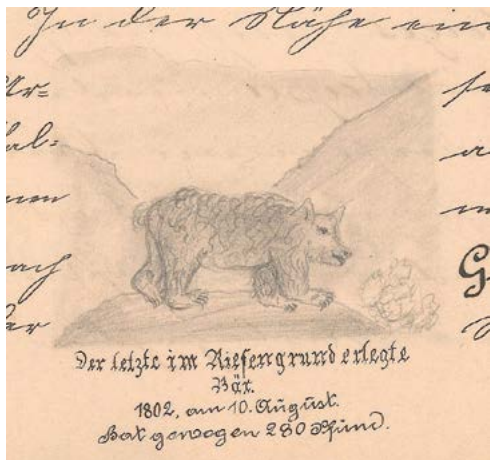 In der Nähe ein
Ar=
al=
nen
ach
er
G
Der letzte im Riesengrund erlegte
Bär.
1802, am 10. August.
Hat gewogen 280 Pfund.